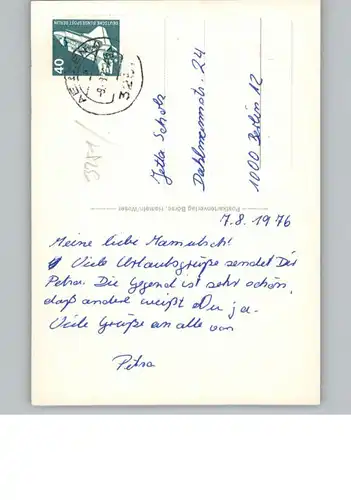 DEUTSCHE BUNDESPOST BERLIN
40
Jetta Scholz
Dahlmannstr. 24
1000 Berlin 12
Postkartenverlag Börse, Hameln/Weser
7.8.1976
Meine liebe Mamutsch!
Viele Urlaubsgrüße sendet Dir
Petra. Die Gegend ist sehr schön,
daß andere weißt Du ja.
Viele Grüße an alle von
Petra